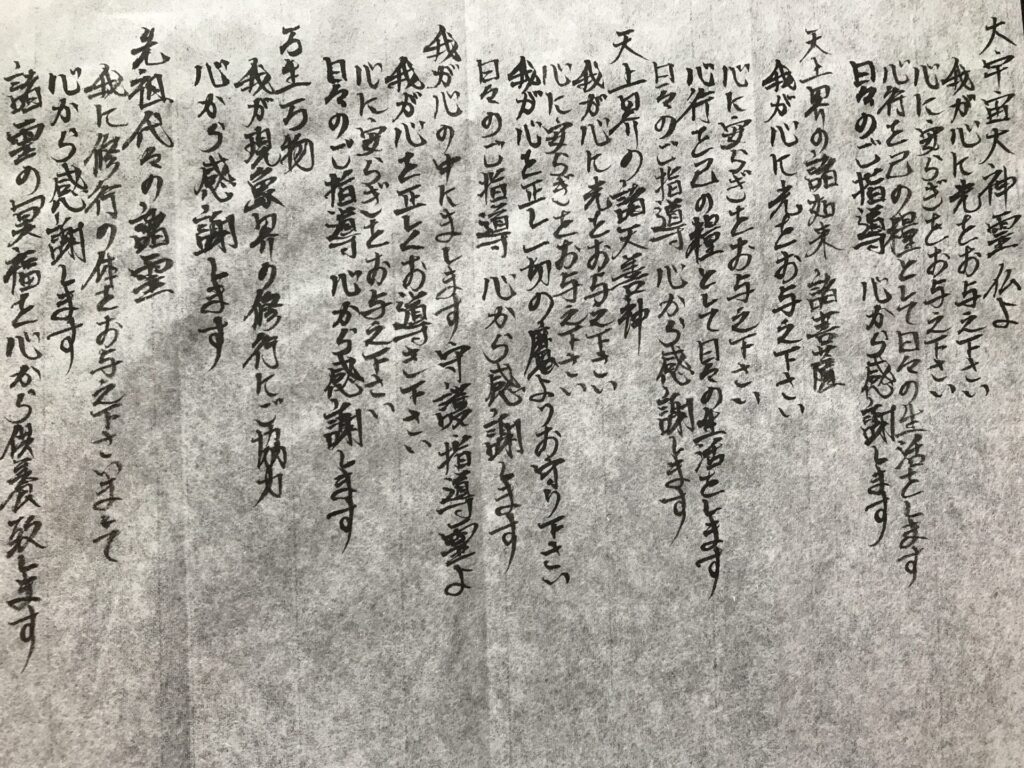 大宇宙大神霊仏よ
我が心に光をお与え下さい
心に安らぎをお与え下さい
心行を己の糧として日々の生活をします
日々のご指導 心から感謝します
天上界の諸如来 諸菩薩
我が心に光をお与え下さい
心に安らぎをお与え下さい
心行を己の糧として日々の生活をします
日々のご指導 心から感謝します
天上界の諸天善神
我が心に光をお与え下さい
心に安らぎをお与え下さい
我が心を正し一切の魔よりお守り下さい
日々のご指導 心から感謝します
我が心の中にまします 守護指導霊よ
我が心を正しくお導き下さい
心に安らぎをお与え下さい
日々のご指導 心から感謝します
万生万物
我が現象界の修行にご協力
心から感謝します
先祖代々の諸霊
我に修行の体をお与え下さいまして
心から感謝します
諸霊の冥福を心から供養致します